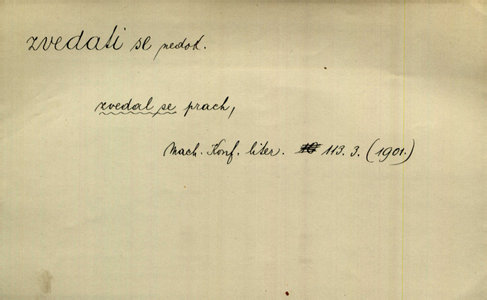 zvedati se nedok.
zvedal se prach,
Mach. Konf. liter. 113. 3. (1901.)